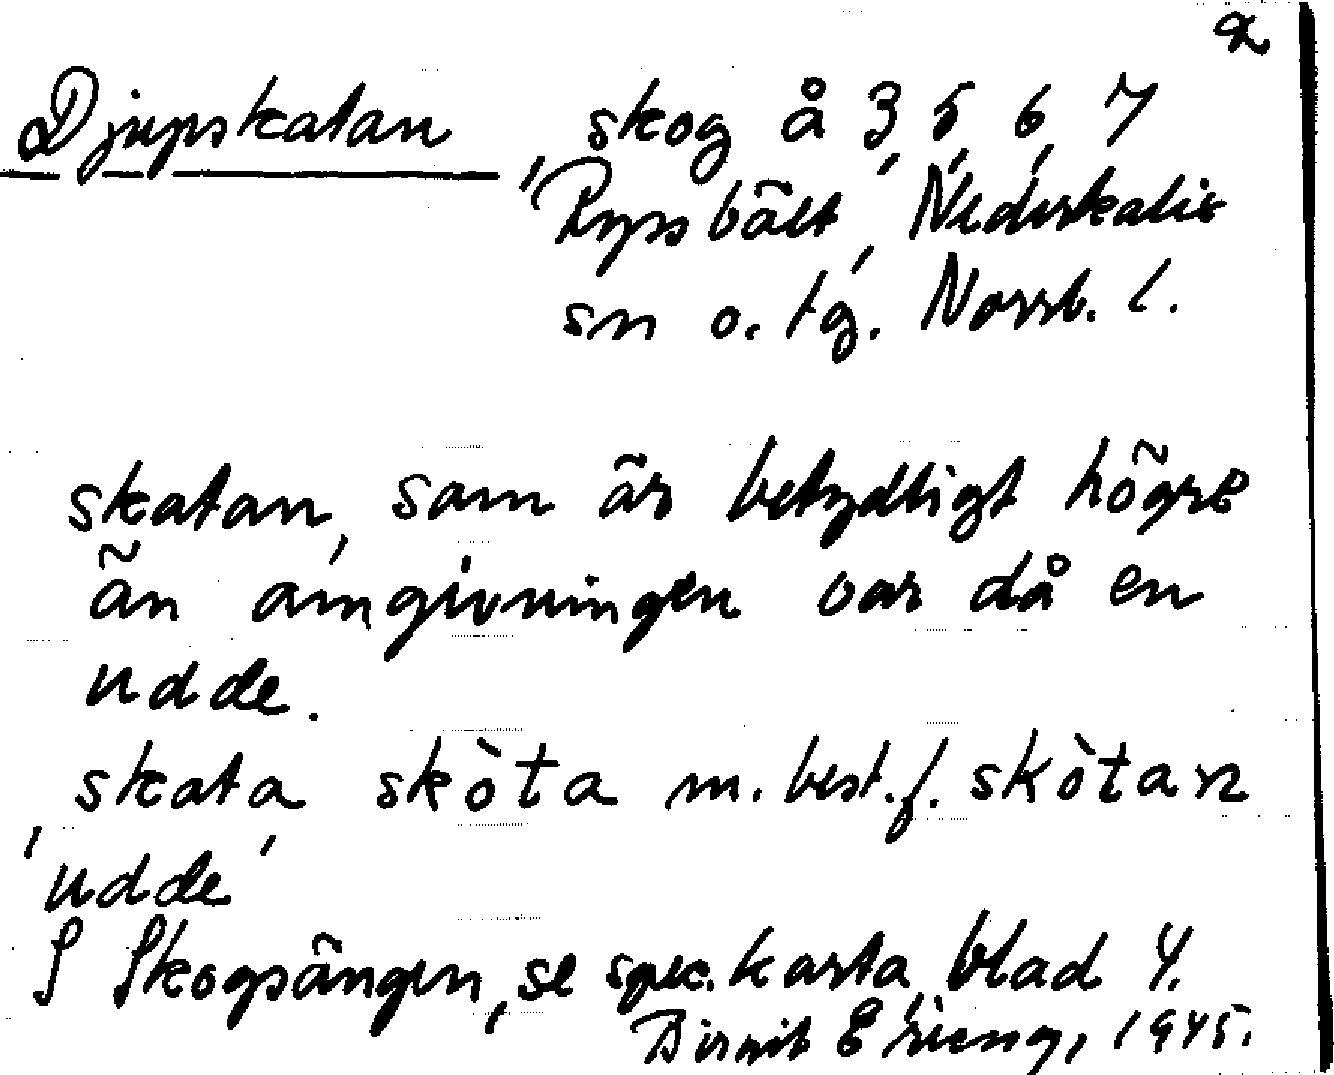 2
Djupskatan, skog å 3, 5, 6, 7
Ryssbält, Nederkalix
sn o. tg. Norrb. l.
skatan, som är betydligt högre
än omgivningen var då en
udde.
skata skòta m. best. f. skòtan
'udde'
S Skogsängen, se spec. karta, blad 4.
Birgit Ericng, 1945.